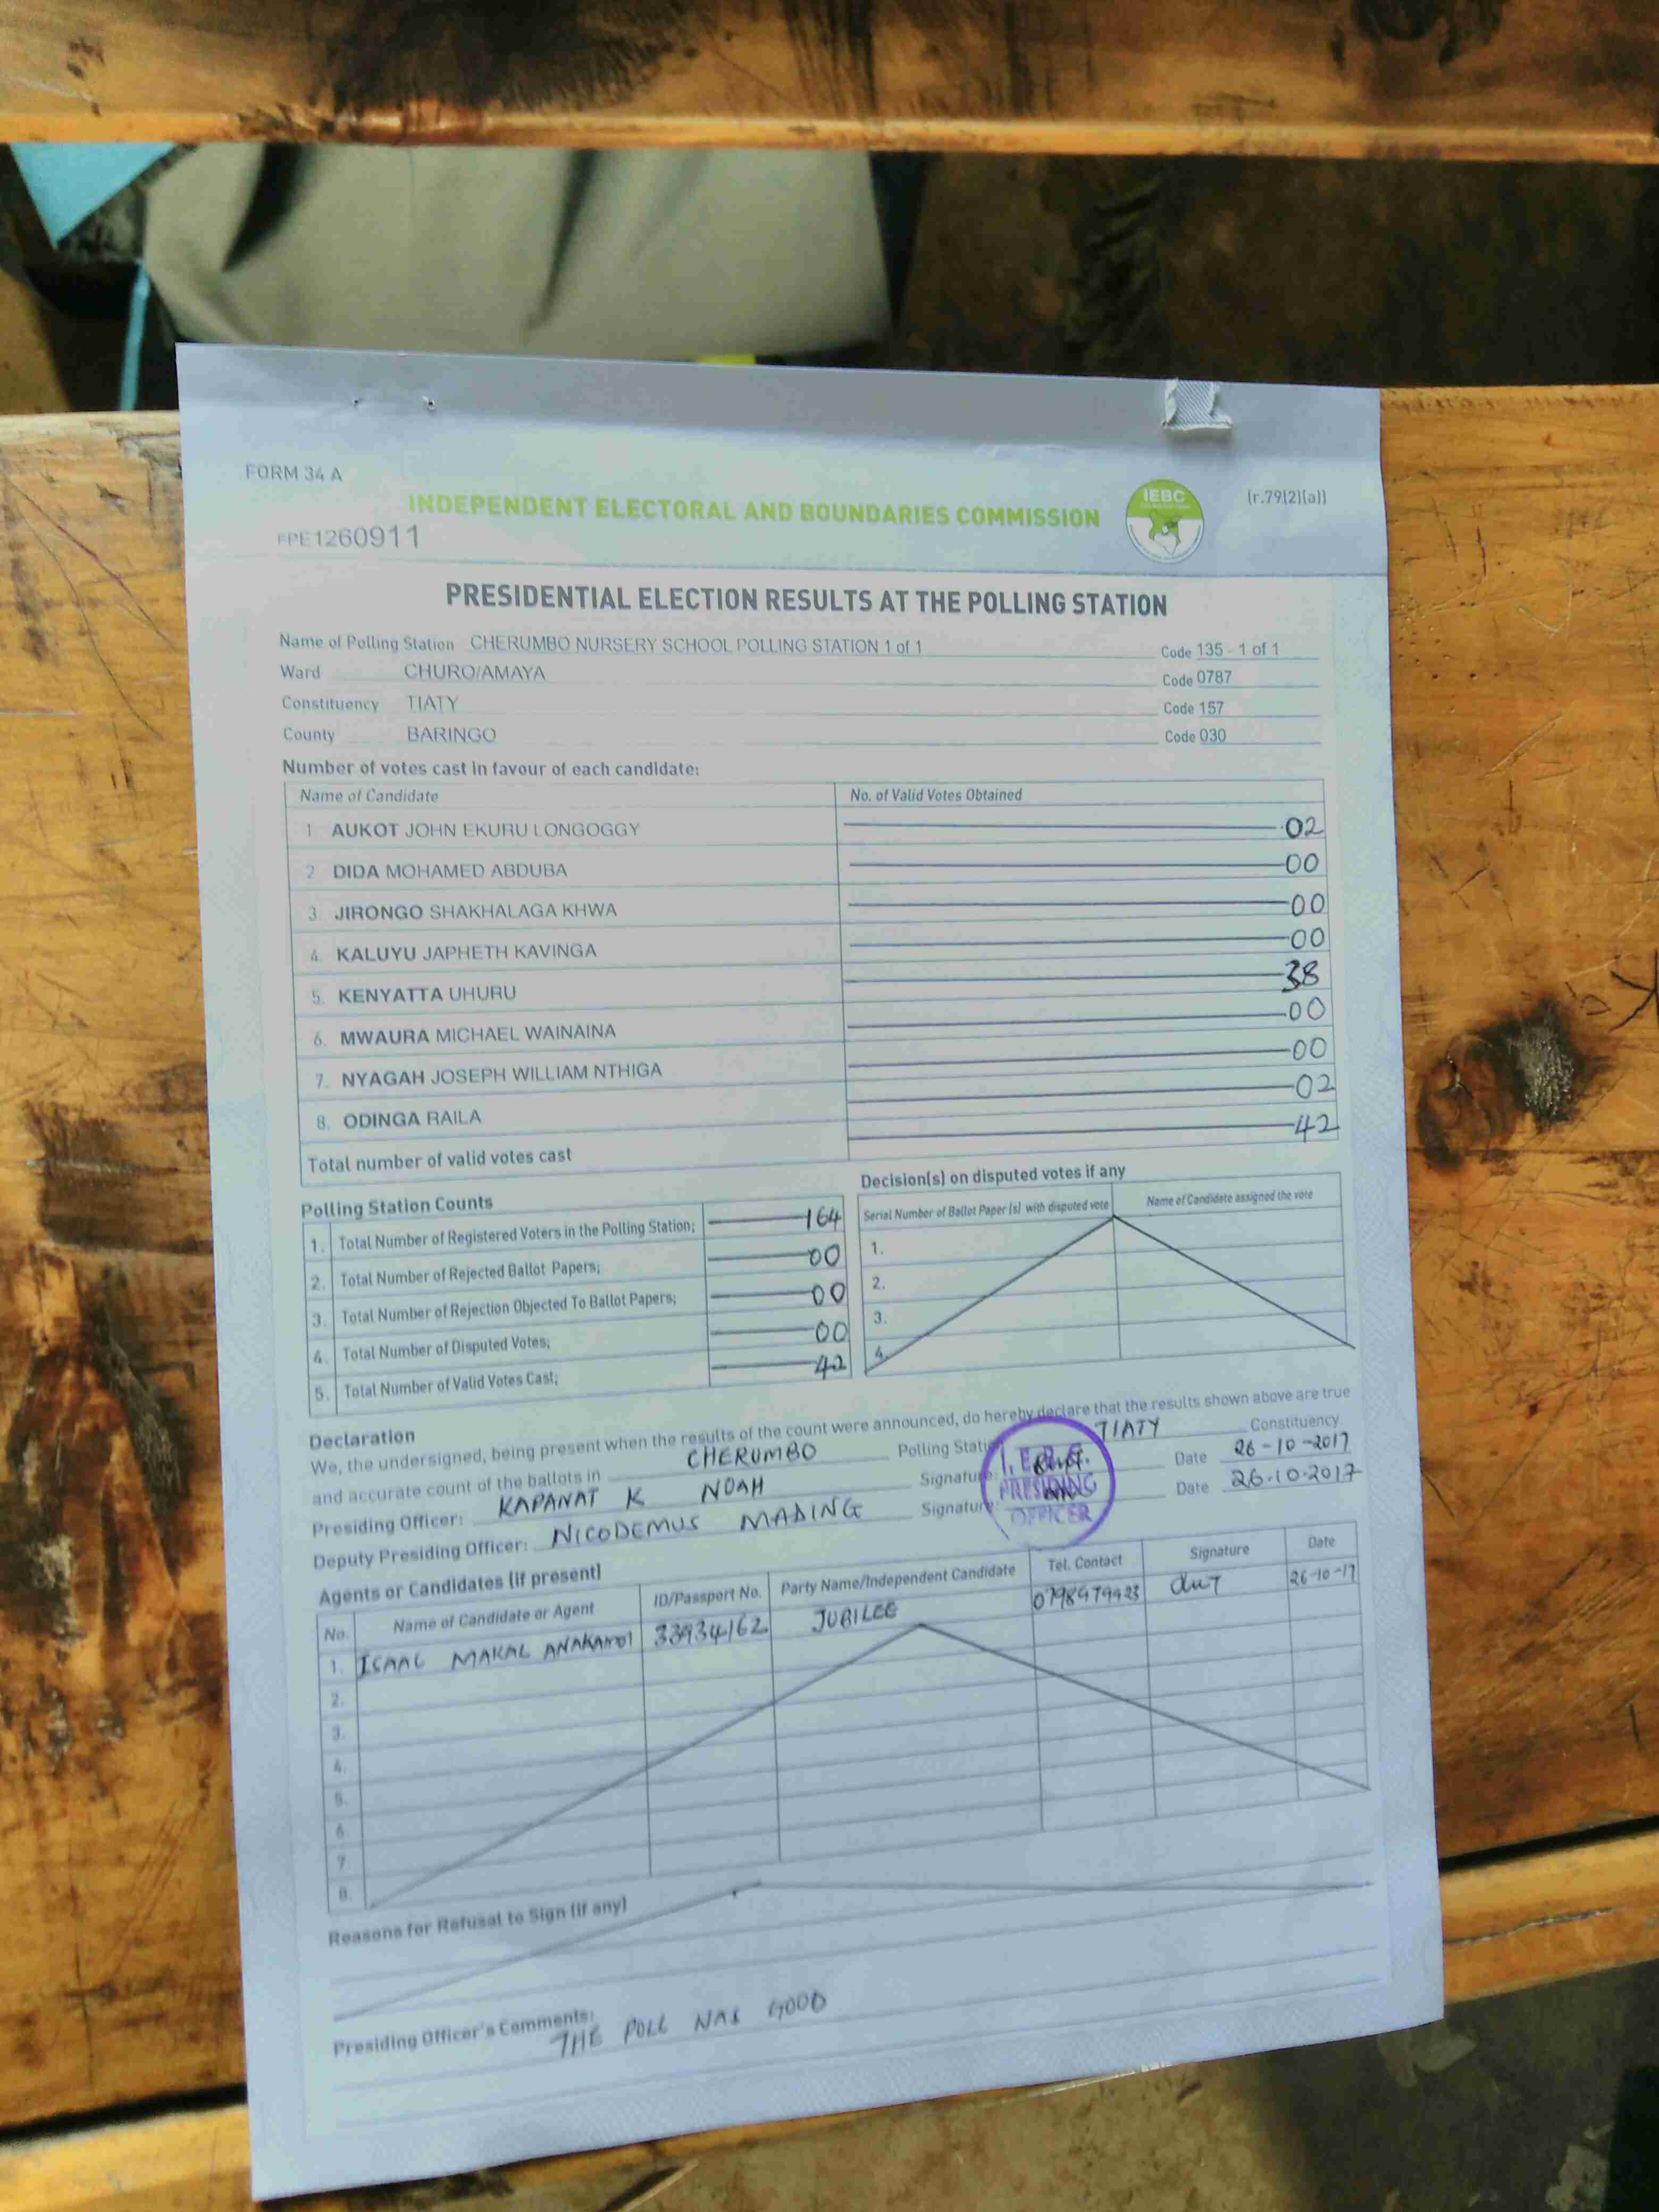 FORM 34 A
INDEPENDENT ELECTORAL AND BOUNDARIES COMMISSION
IEBC
(r.79(2)(a))
FPE1260911
PRESIDENTIAL ELECTION RESULTS AT THE POLLING STATION
Name of Polling Station CHERUMBO NURSERY SCHOOL POLLING STATION 1 of 1 Code 135 - 1 of 1
Ward CHURO/AMAYA Code 0787
Constituency TIATY Code 157
County BARINGO Code 030
Number of votes cast in favour of each candidate:
Name of Candidate No. of Valid Votes Obtained
1 AUKOT JOHN EKURU LONGOGGY 02
2 DIDA MOHAMED ABDUBA 00
3. JIRONGO SHAKHALAGA KHWA 00
4. KALUYU JAPHETH KAVINGA 00
5. KENYATTA UHURU 38
6. MWAURA MICHAEL WAINAINA 00
7. NYAGAH JOSEPH WILLIAM NTHIGA 00
8. ODINGA RAILA 02
Total number of valid votes cast 42
Polling Station Counts
1. Total Number of Registered Voters in the Polling Station; 164
2. Total Number of Rejected Ballot Papers; 00
3. Total Number of Rejection Objected To Ballot Papers; 00
4. Total Number of Disputed Votes; 00
5. Total Number of Valid Votes Cast; 42
Decision(s) on disputed votes if any
Serial Number of Ballot Paper (s) with disputed vote Name of Candidate assigned the vote
1.
2.
3.
4.
Declaration
We, the undersigned, being present when the results of the count were announced, do hereby declare that the results shown above are true
and accurate count of the ballots in CHERUMBO Polling Stati TIATY Constituency
Presiding Officer: KAPANAT K NOAH Signature: Date 26-10-2017
Deputy Presiding Officer: NICODEMUS MADING Signature: Date 26.10.2017
PRESIDING
OFFICER
Agents or Candidates (if present)
No. Name of Candidate or Agent ID/Passport No. Party Name/Independent Candidate Tel. Contact Signature Date
1. ISAAC MAKAL 33934162 JUBILEE 26-10-17
2.
3.
4.
5.
6.
7.
8.
Reasons for Refusal to Sign (if any)
Presiding Officer's Comments: THE POLL WAS GOOD